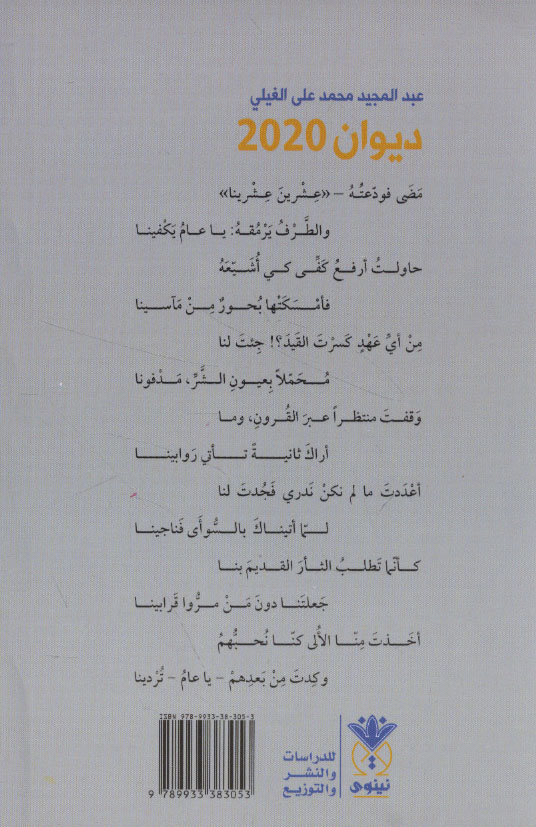 عبد المجيد محمد علي الغيلي
ديوان 2020
مَضَى فودّعتُهُ – «عِشْرينَ عِشْرينا»
والطَّرْفُ يَرْمُقهُ: يا عامُ يَكْفينا
حاولتُ أرفعُ كَفِّى كي أُشَيِّعَهُ
فأمْسَكَتْها بُحورٌ مِنْ مَآسينا
مِنْ أيِّ عَهْدٍ كَسرْتَ القَيدَ؟! جِئتَ لنا
مُحَمّلاً بِعيونِ الشَّرِّ، مَدْفونا
وَقفتَ منتظراً عبرَ القُرونِ، وما
أراكَ ثانيةً تأتي رَوابينا
أعْدَدتَ ما لم نكنْ نَدري فَجُدتَ لنا
لمّا أتيناكَ بالسُّوأَى فَناجينا
كأنّما تَطلبُ الثأرَ القديمَ بنا
جَعلتَنا دونَ مَنْ مرُّوا قَرابينا
أخَذتَ مِنّا الأُلى كنّا نُحبُّهمُ
وكِدتَ مِنْ بَعدِهمْ – يا عامُ – تُرْدينا
ISBN 978-9933-38-305-3
9 789933 383053
للدراسات
والنشر
والتوزيع
نينوى